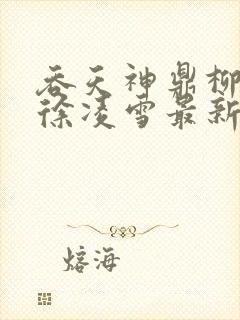 吞天神鼎柳
徐凌雪最新
熔海